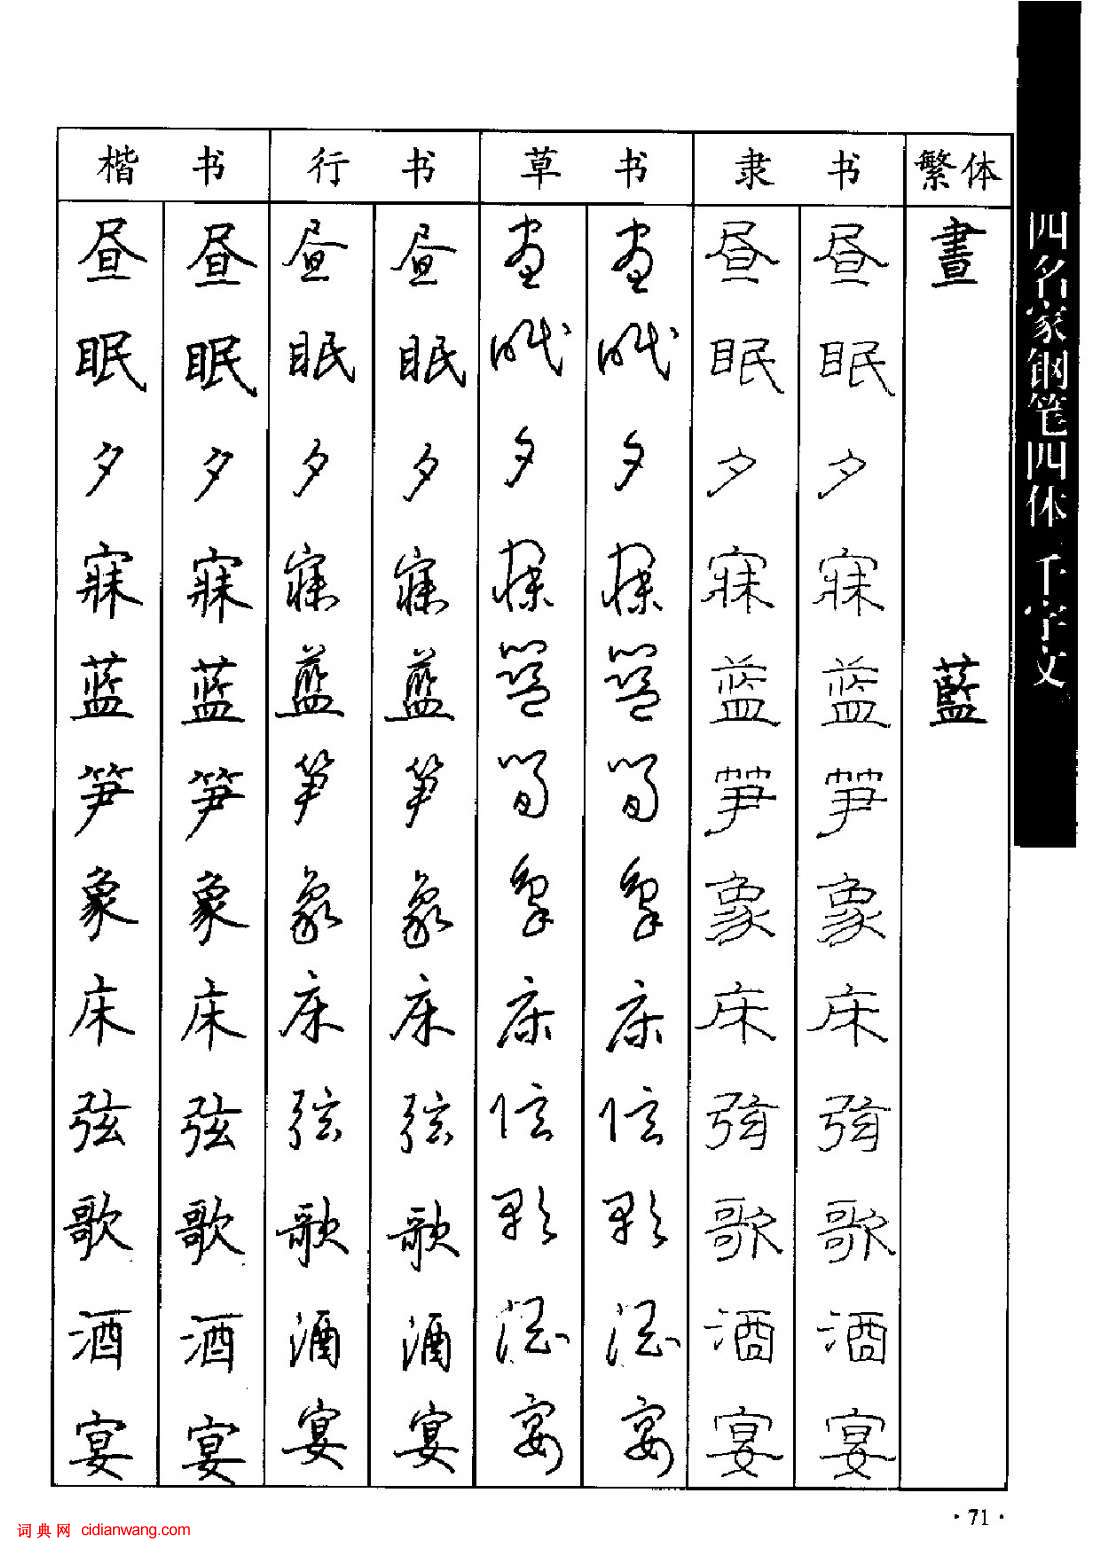 楷书 行书 草书 隶书 繁体
昼 昼 昼 昼 昼 昼 昼 昼 晝
眠 眠 眠 眠 眠 眠 眠 眠
夕 夕 夕 夕 夕 夕 夕 夕
寐 寐 寐 寐 寐 寐 寐 寐
蓝 蓝 蓝 蓝 蓝 蓝 蓝 蓝 藍
笋 笋 笋 笋 笋 笋 笋 笋
象 象 象 象 象 象 象 象
床 床 床 床 床 床 床 床
弦 弦 弦 弦 弦 弦 弦 弦
歌 歌 歌 歌 歌 歌 歌 歌
酒 酒 酒 酒 酒 酒 酒 酒
宴 宴 宴 宴 宴 宴 宴 宴
四名家钢笔四体千字文
·71·
词典网 cidianwang.com